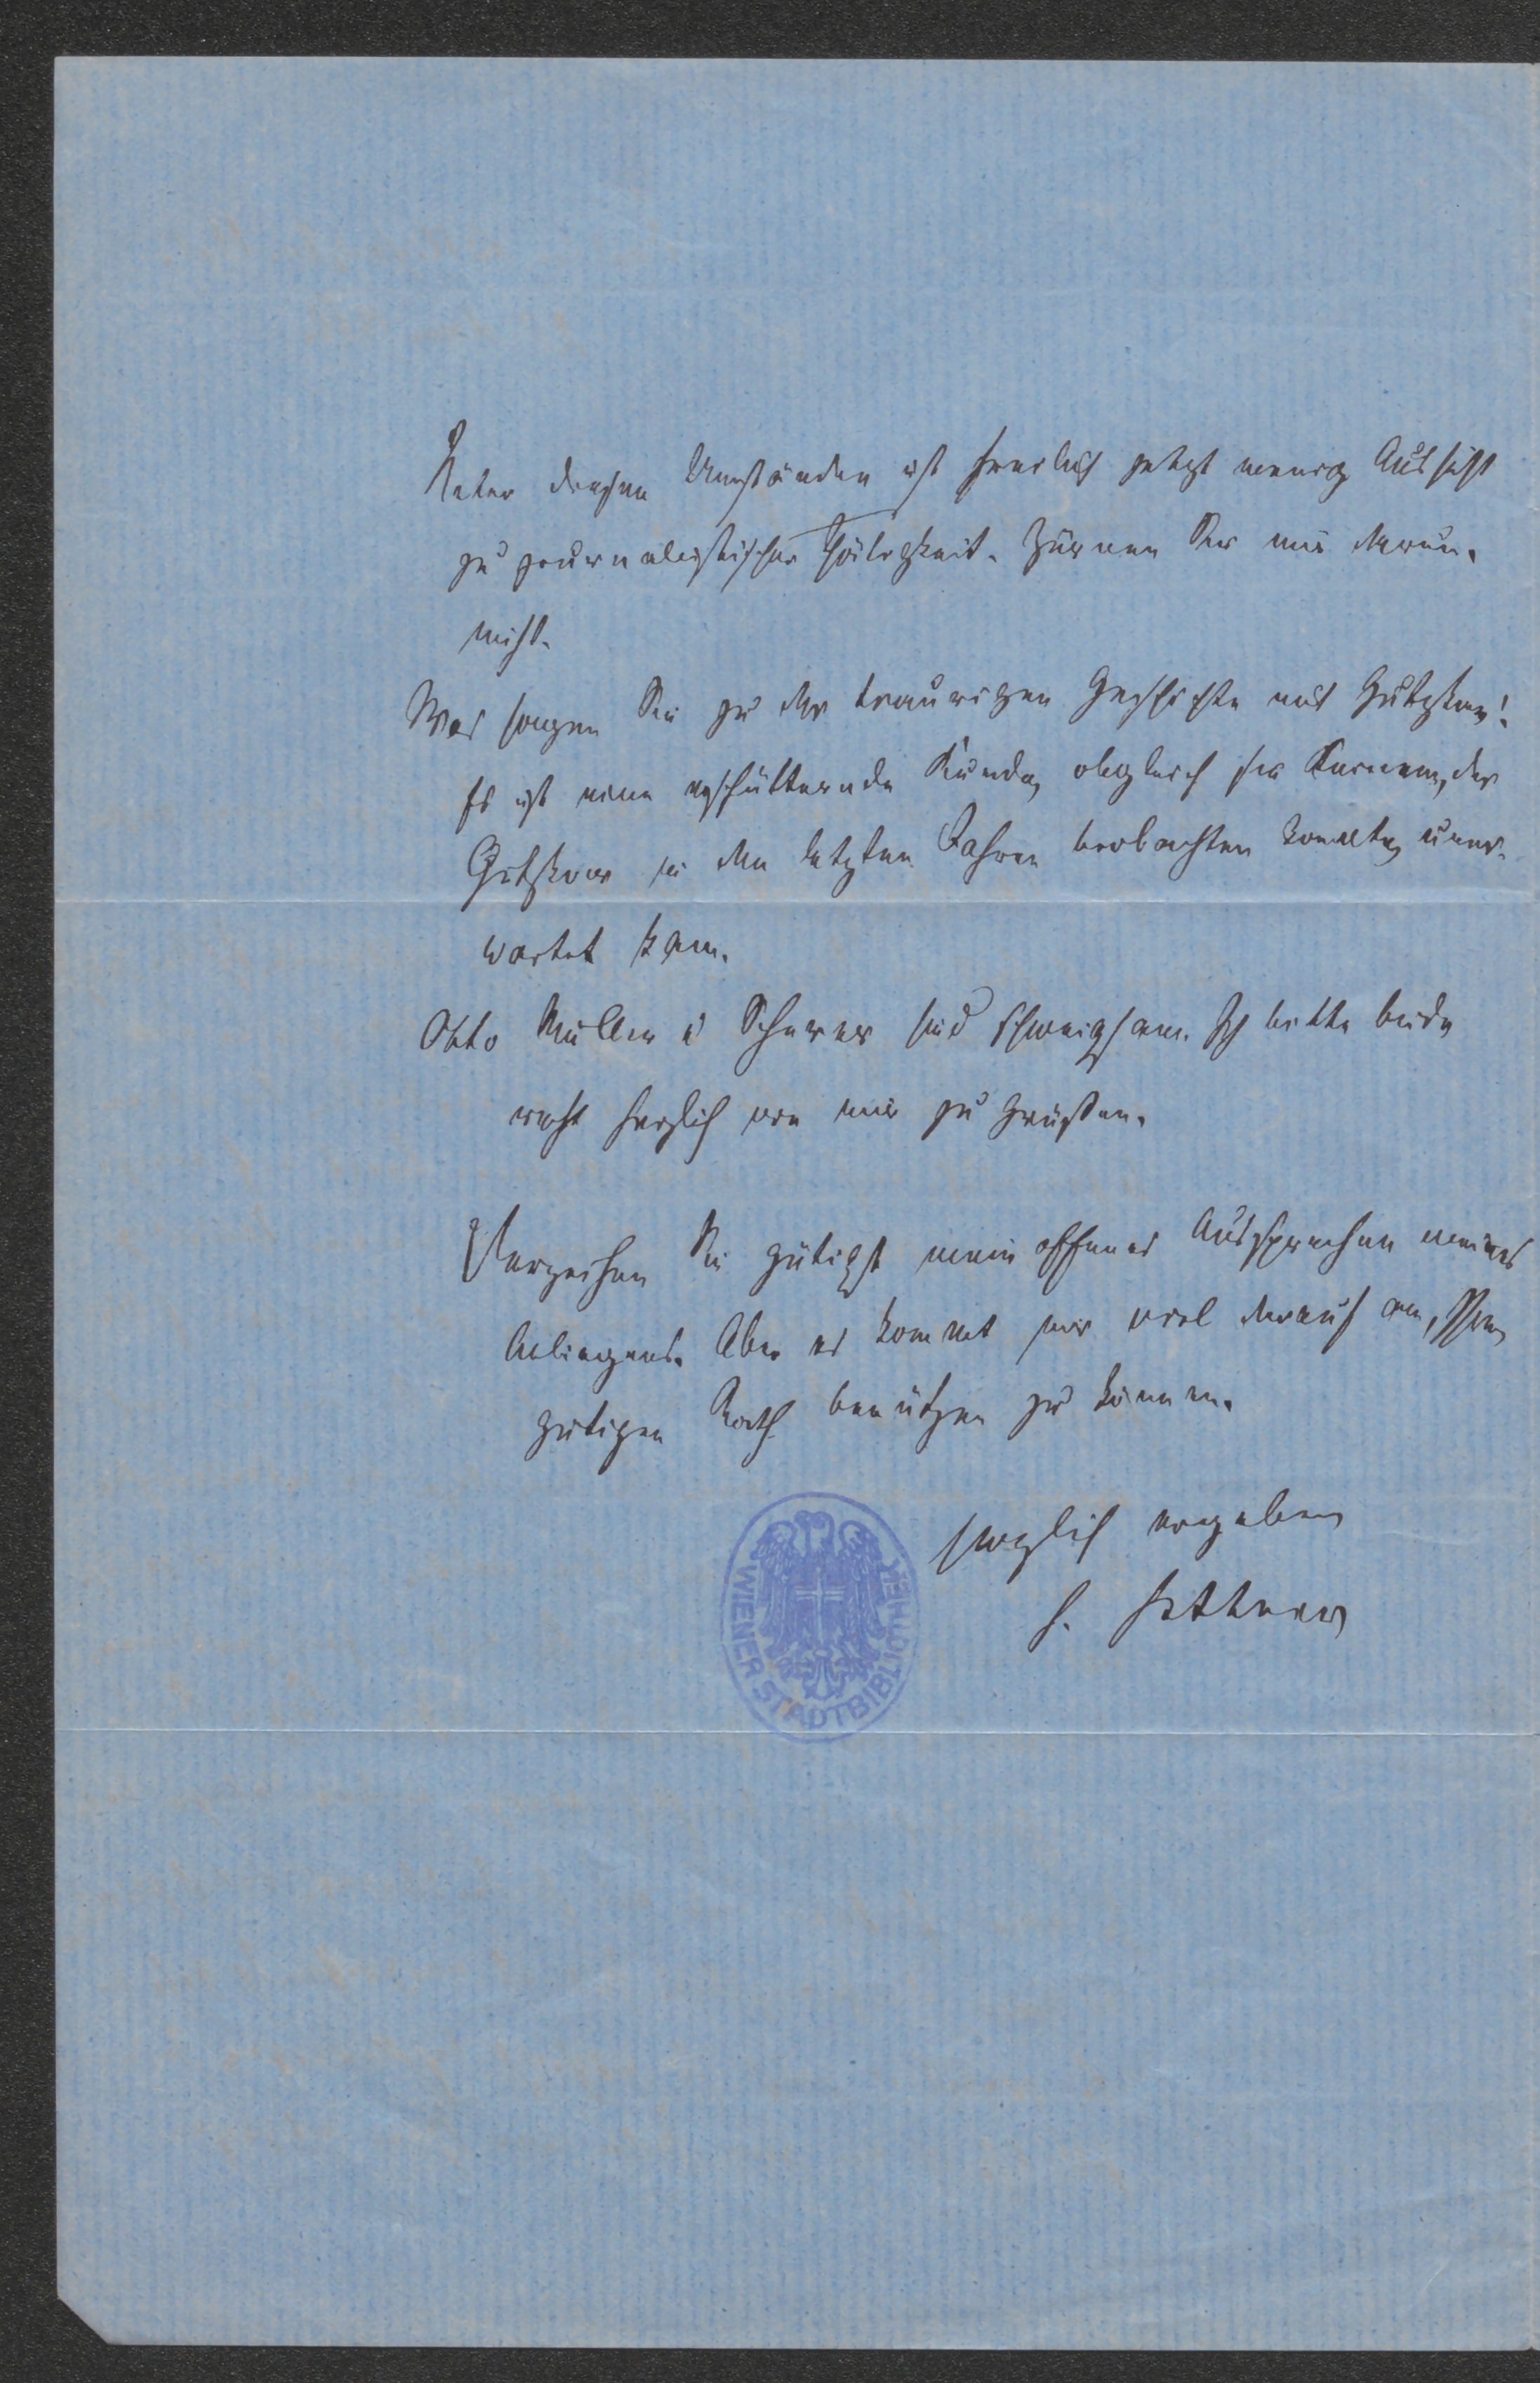 Unter diesen Umständen ist freilich jetzt wenig Aussicht
zu journalistischer Thätigkeit. Zürnen Sie mir darum
nicht.
Was sagen Sie zu der traurigen Geschichte mit Gutzkow!
Es ist eine erschütternde Kunde, obgleich sie Keinem, der
Gutzkow in den letzten Jahren beobachten konnte, uner-
wartet kam.
Otto Müller u Scherer sind schweigsam. Ich bitte beide
recht herzlich von mir zu grüßen.
Verzeihen Sie gütigst mein offenes Aussprechen meines
Anliegens. Aber es kommt mir viel darauf an, Ihren
gütigen Rath benützen zu können.
herzlich ergeben
H. Hettner
WIENER STADTBIBLIOTHEK